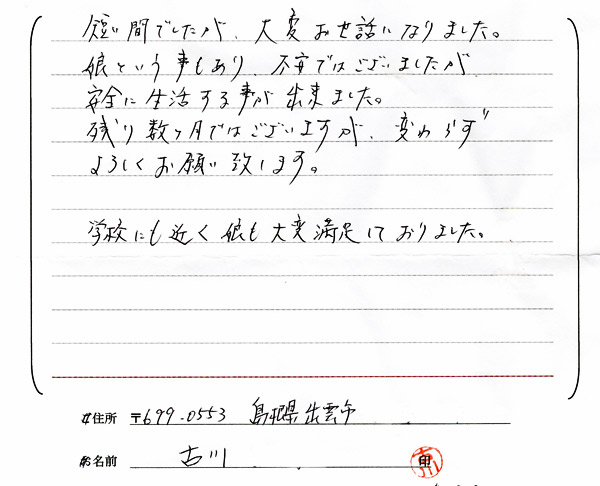 短い間でしたが、大変お世話になりました。
娘という事もあり、不安ではございましたが
安全に生活する事が出来ました。
残り数ヶ月ではございますが、変わらず
よろしくお願い致します。
学校にも近く娘も大変満足しておりました。
ご住所 〒699-0553 島根県出雲市
お名前 古川 印